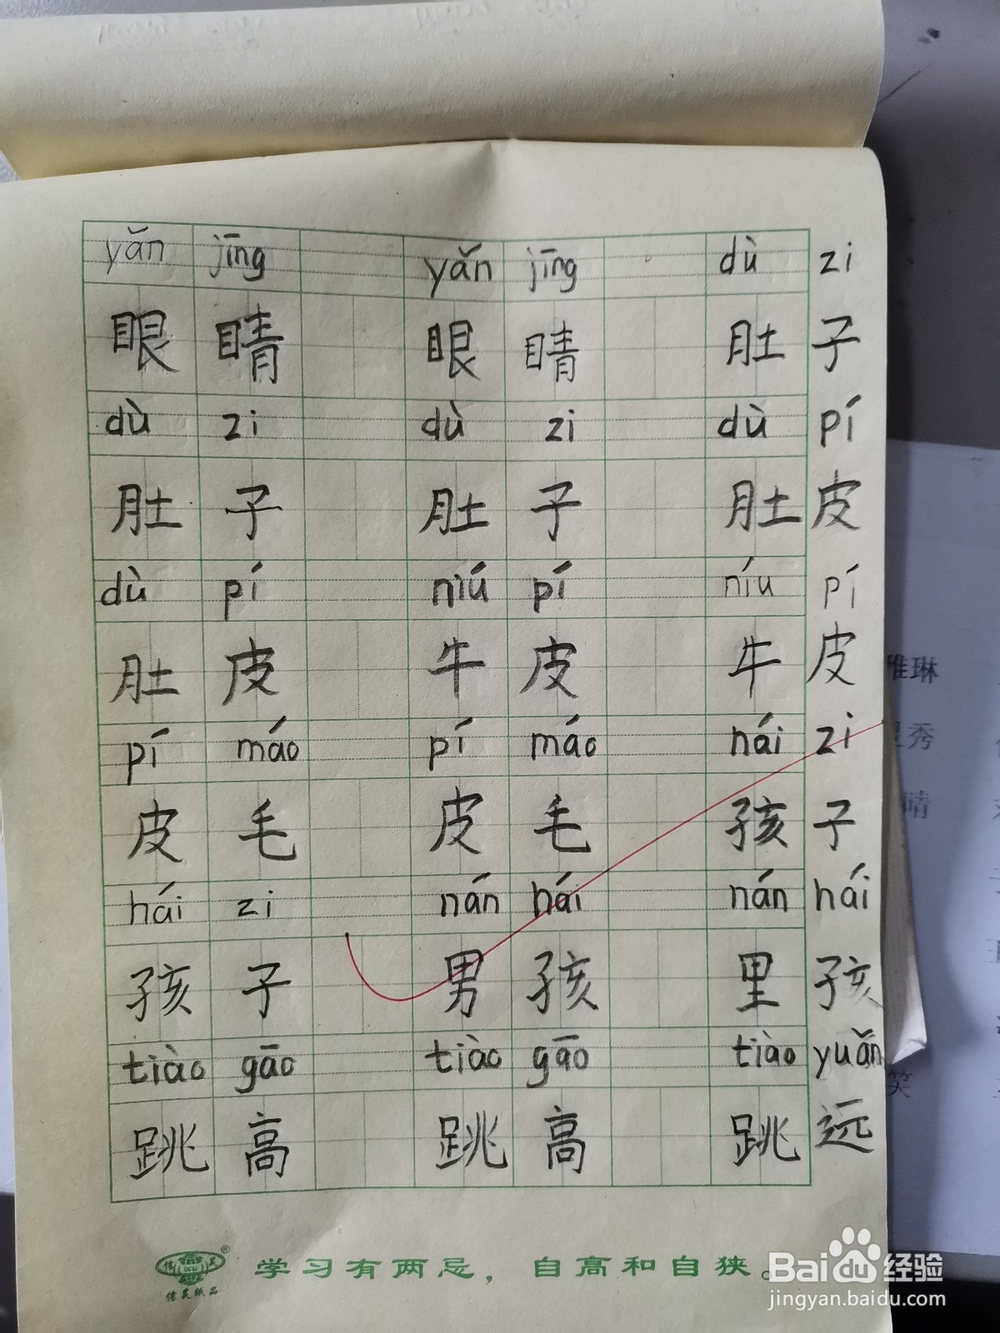 yǎn jīng yǎn jīng dù zi
眼睛 眼睛 肚子
dù zi dù zi dù pí
肚子 肚子 肚皮
dù pí niú pí níu pí
肚皮 牛皮 牛皮
pí máo pí máo nái zi
皮毛 皮毛 孩子
hái zi nán hái nán hái
孩子 男孩 里孩
tiào gāo tiào gāo tiào yuǎn
跳高 跳高 跳远
学习有两忌，自高和自狭。
信义纸品
雅琳
秀
晴
笑
Baidu经验
jingyan.baidu.com